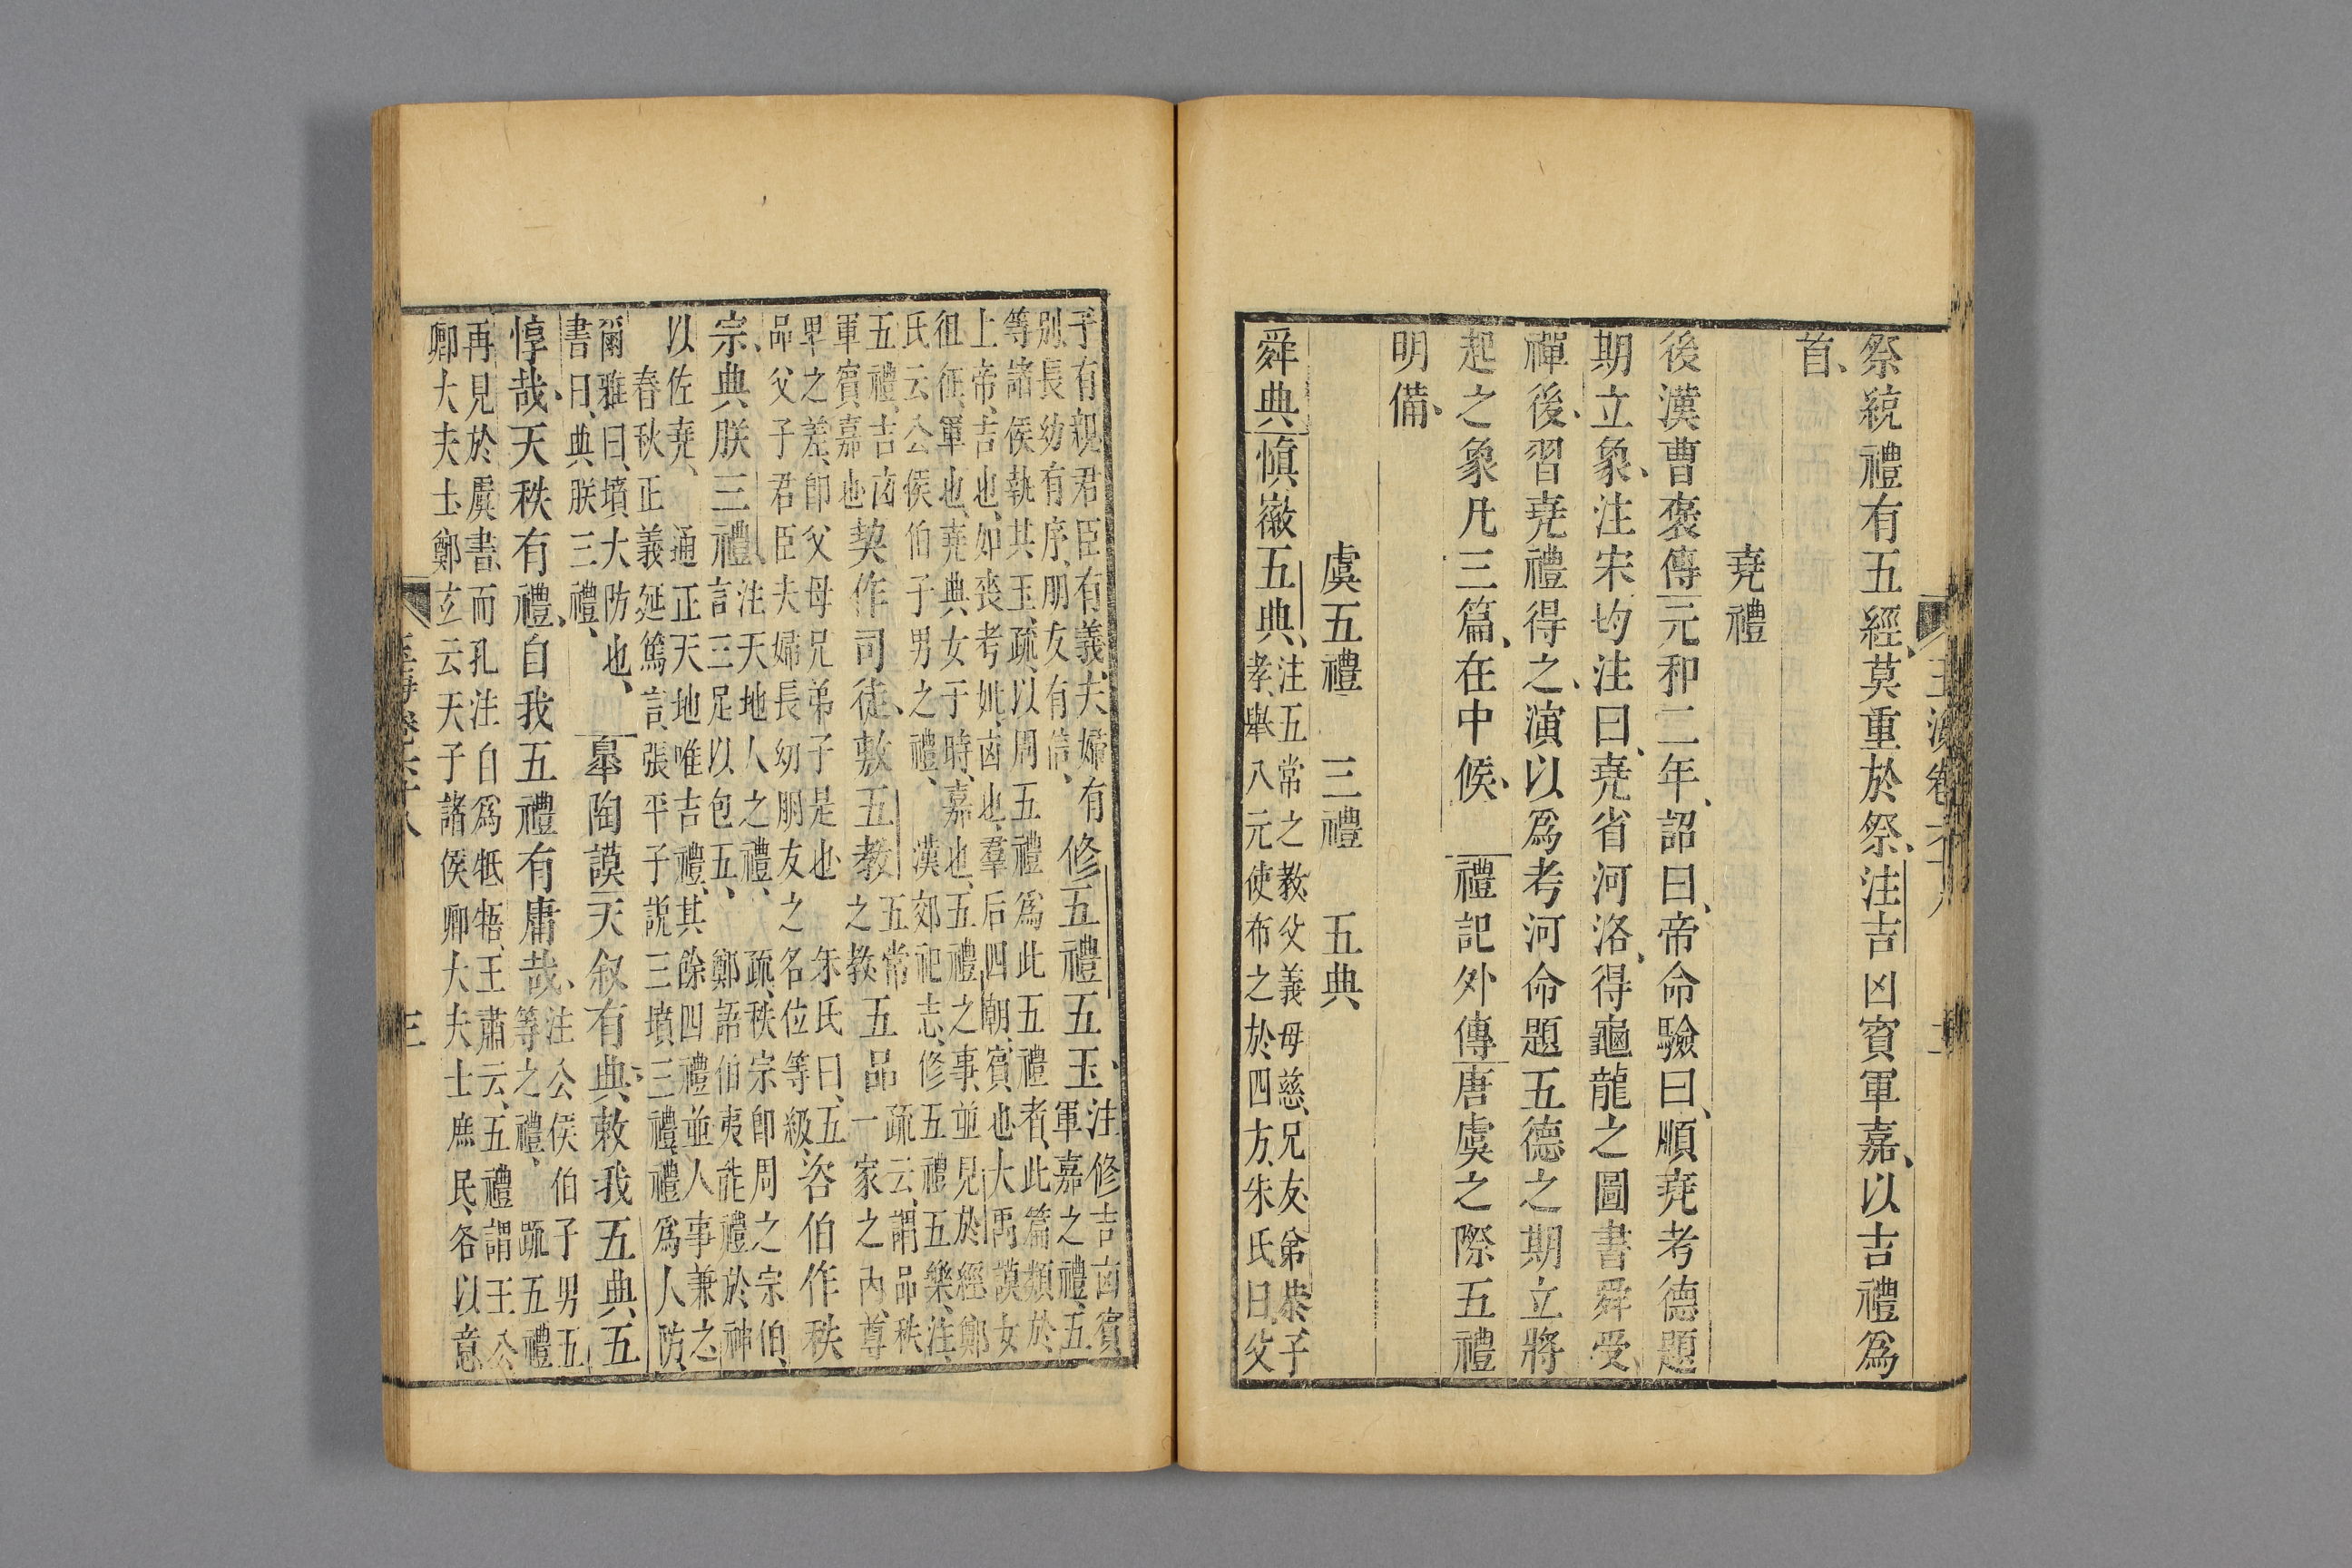 玉海卷六十八
祭統禮有五經、莫重於祭、注吉凶賓軍嘉、以吉禮爲
首、
堯禮
後漢曹褒傳元和二年、詔曰、帝命驗曰、順堯考德題
期立象、注宋均注曰、堯省河洛、得龜龍之圖書舜受
禪後、習堯禮得之、演以爲考河命題五德之期立將
起之象凡三篇、在中候、禮記外傳唐虞之際五禮
明備、
虞五禮 三禮 五典、
舜典愼徽五典、注五常之教父義母慈、兄友弟恭、子
孝、舉八元使布之於四方、朱氏曰、父
子有親君臣有義、夫婦有
別長幼有序、朋友有信、修五禮五玉、注修吉凶賓
軍嘉之禮、五
等諸侯執其玉、疏、以周五禮爲此五禮者、此篇類於
上帝、吉也、如喪考妣、凶也、羣后四朝、賓也、大禹謨女
徂征、軍也、堯典女于時、嘉也、五禮之事、並見於經、鄭
氏云公侯伯子男之禮、漢郊祀志、修五禮五樂、注、
五禮、吉凶
軍賓嘉也契作司徒、敷五教五常
之教五品疏云、謂品秩
一家之內、尊
卑之差、即父母兄弟子是也朱氏曰、五
品父子君臣夫婦長幼朋友之名位等級、咨伯作秩
宗、典朕三禮、注天地人之禮、疏、秩宗即周之宗伯、
言三足以包五、鄭語伯夷能禮於神
以佐堯、通正天地唯吉禮、其餘四禮並人事兼之、
春秋正義延篤言、張平子説三墳、三禮、禮爲人防、
爾雅曰、墳大防也、
書曰、典朕三禮、皋陶謨天叙有典、敕我五典、五
惇哉、天秩有禮、自我五禮有庸哉、注公侯伯子男五
等之禮、疏五禮
再見於虞書、而孔注自爲牴牾、王肅云、五禮謂王公
卿大夫士鄭玄云天子諸侯卿大夫士庶民、各以意
三